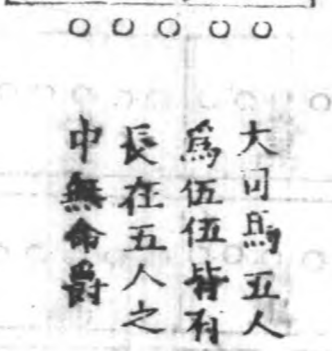 大司馬五人
爲伍伍皆有
長在五人之
中無命爵